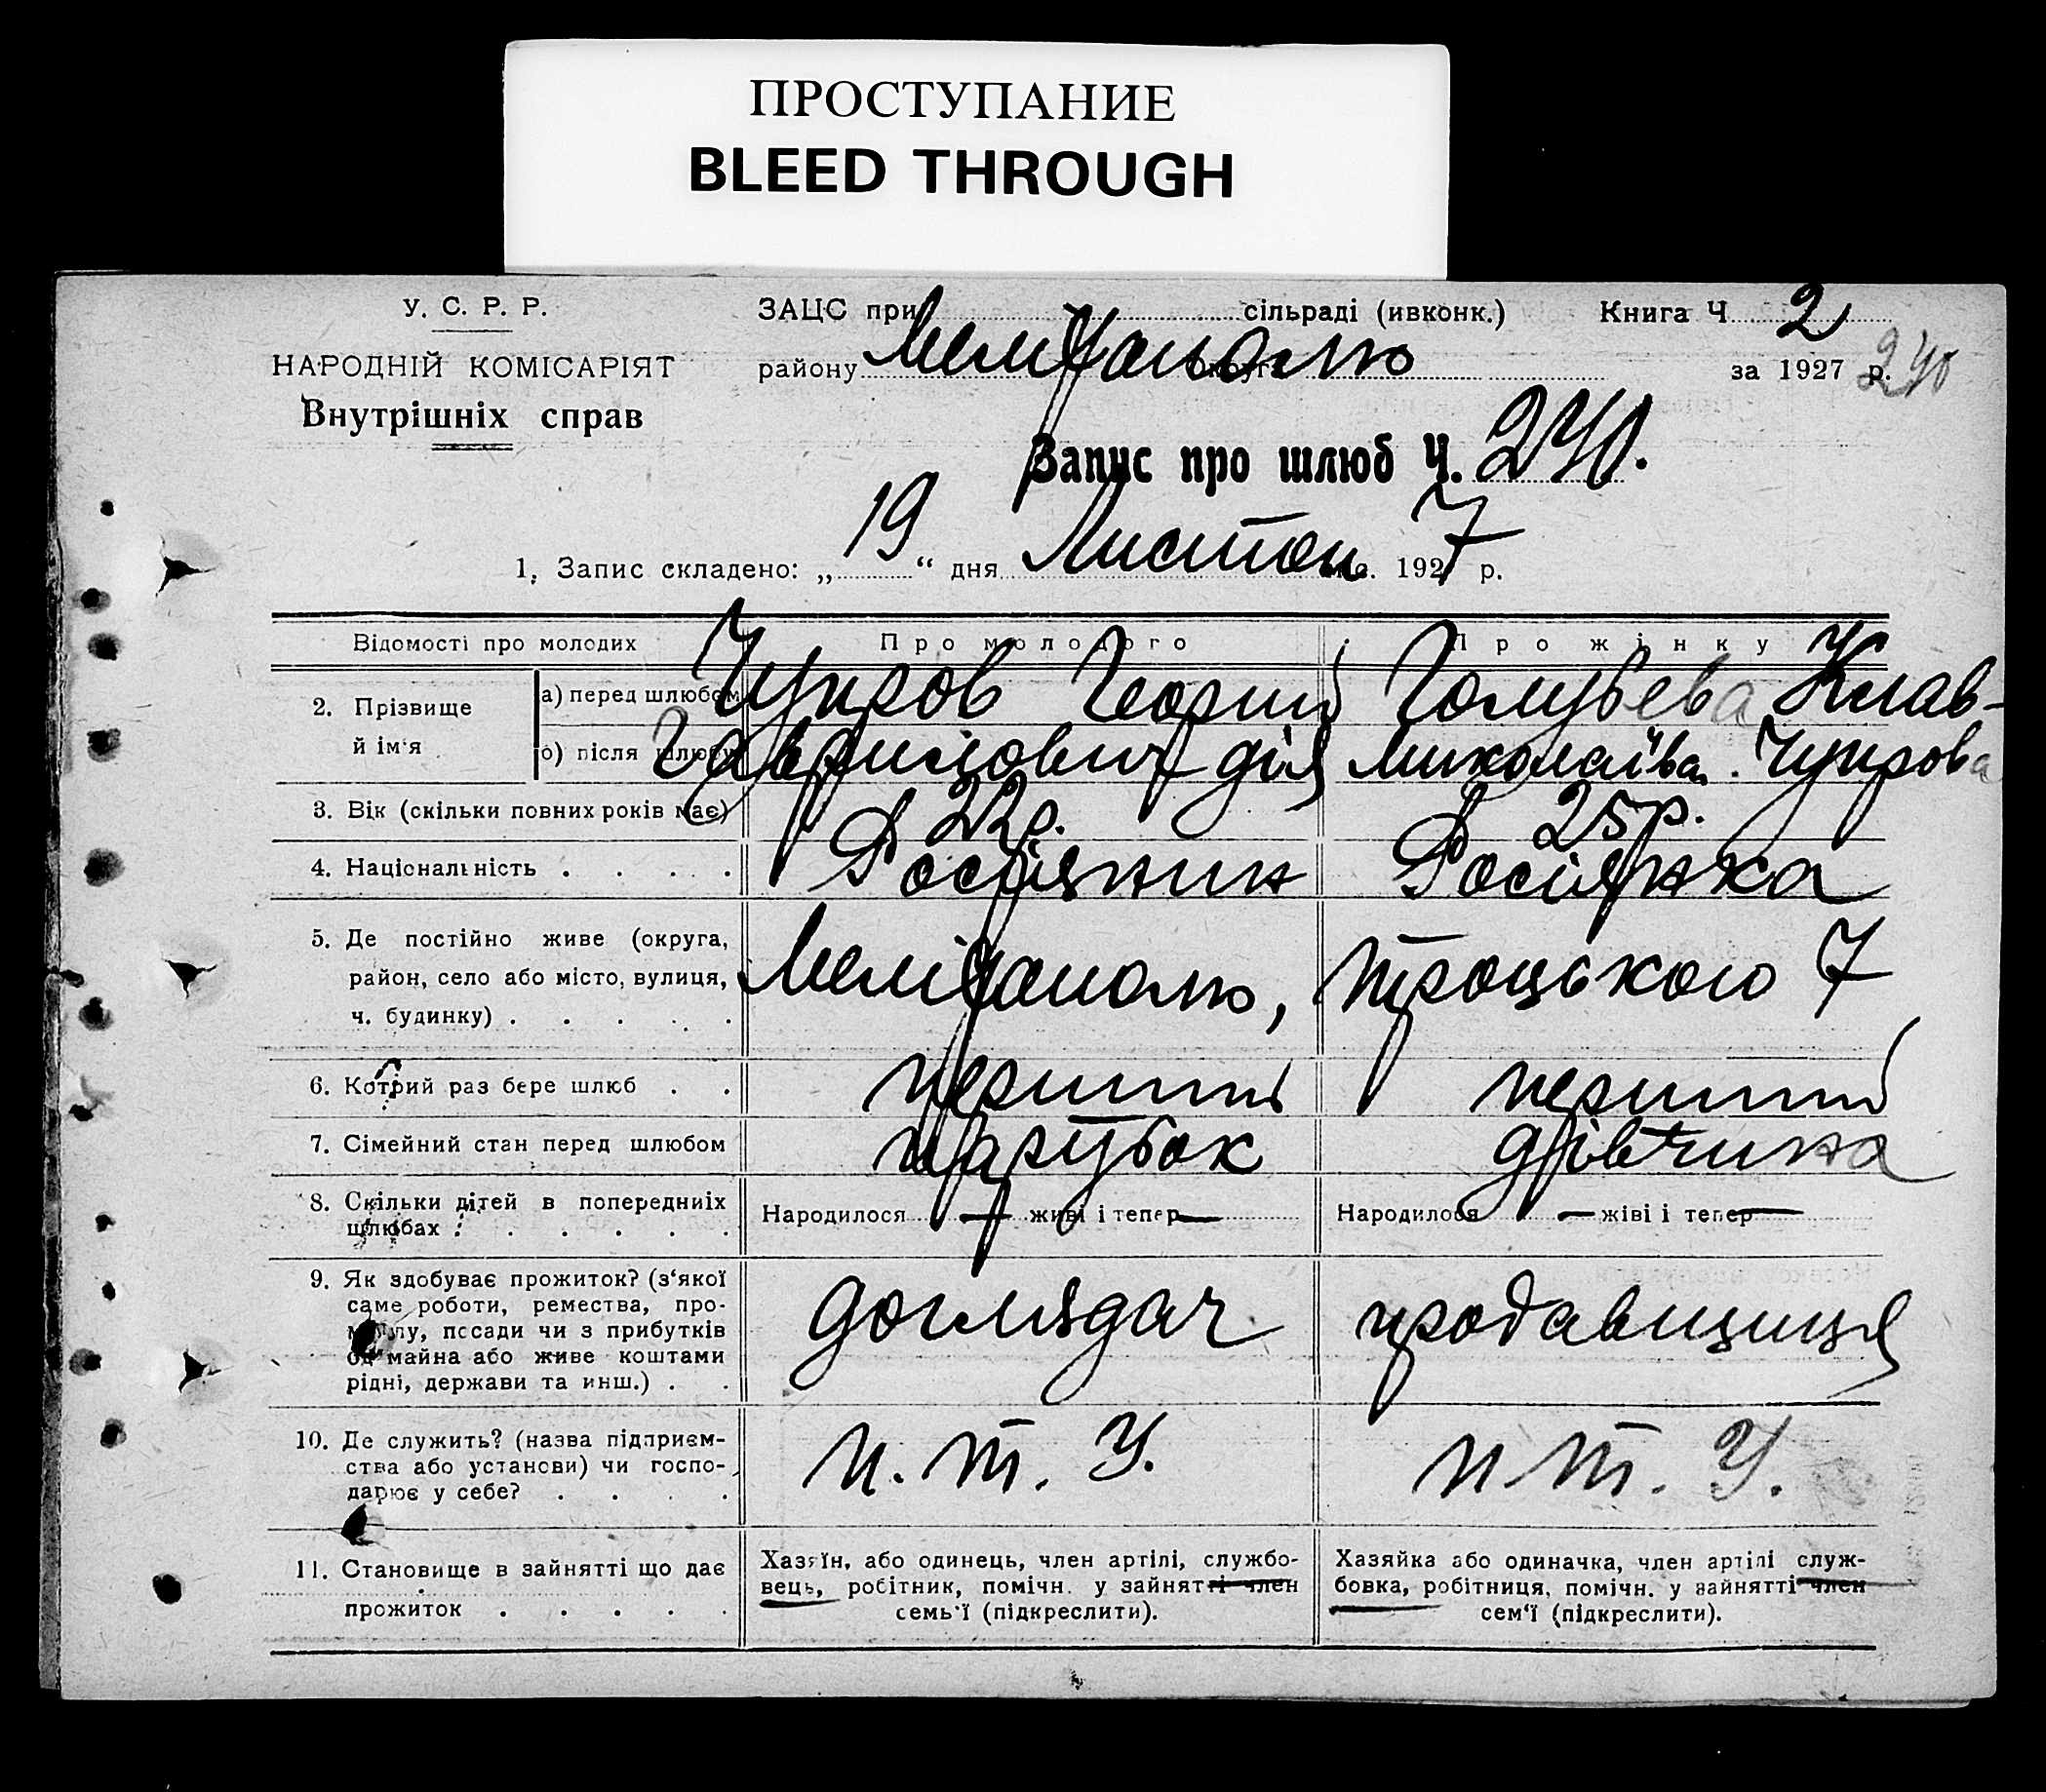 ПРОСТУПАНИЕ
BLEED THROUGH
У. С. Р. Р.
НАРОДНІЙ КОМІСАРІЯТ
Внутрішніх справ
ЗАЦС при сільраді (ивконк.) Книга Ч 2
району Мелітополю за 1927 р. 240
Запис про шлюб Ч. 240.
1. Запис складено: „ 19 “ дня Листоп 1927 р.
Відомості про молодих Про молодого Про жінку
2. Прізвище й ім'я
а) перед шлюбом Чупров Георгий Голубєва Клав-
б) після шлюбу дія Миколаївна. Чупрова
3. Вік (скільки повних років має) 22р. 25р.
4. Національність . . . . Росіянин Росіянка
5. Де постійно живе (округа,
район, село або місто, вулиця, Мелітополю, Троцького 7
ч. будинку) . . . . .
6. Котрий раз бере шлюб . . перший перший
7. Сімейний стан перед шлюбом парубок дівчина
8. Скільки дітей в попередниіх
шлюбах . . . . . . Народилося — живі і тепер — Народилося — жіві і тепер —
9. Як здобуває прожиток? (з‘якої
саме роботи, ремества, про-
мислу, посади чи з прибутків
од майна або живе коштами
рідні, держави та инш.) . .
доглядач продавщиця
10. Де служить? (назва підприєм-
ства або установи) чи госпо-
дарює у себе? . . . .
П. Т. У. П Т. У.
11. Становище в зайнятті що дає
прожиток . . . . .
Хазяїн, або одинець, член артілі, службо-
вець, робітник, помічн. у зайнятті член
семь'ї (підкреслити).
Хазяйка або одиначка, член артілі служ-
бовка, робітниця, помічн. у зайнятті член
сем‘ї (підкреслити).